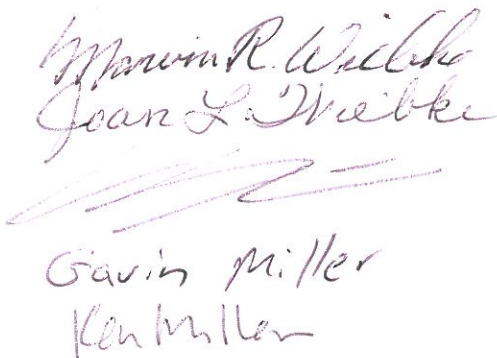 Marvin R. Wiebke
Joan L. Wiebke
Gavin Miller
Ken Miller